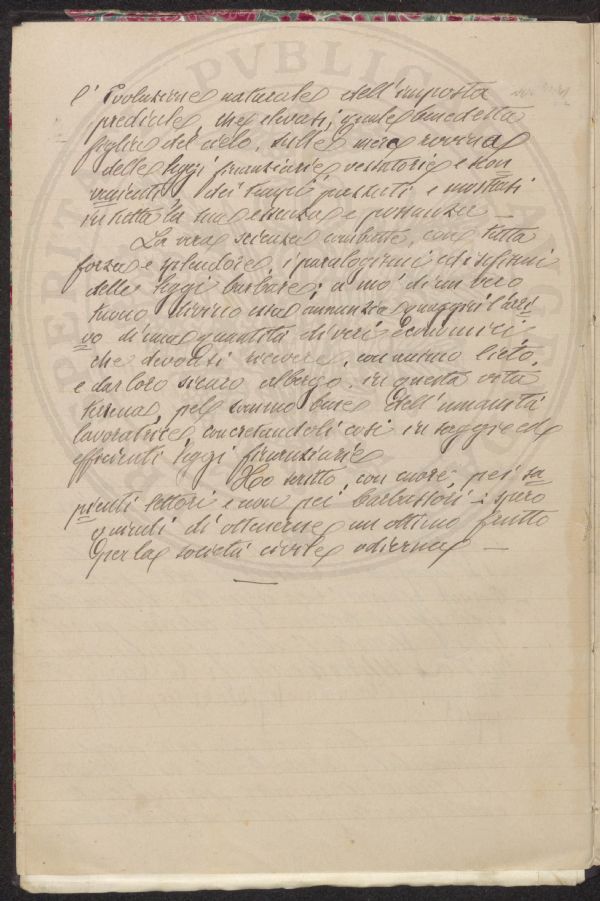 l'Evoluzione naturale dell'imposta
prediale, che elevasi, quale benedetta
figlia del cielo, sulle rovine
delle leggi finanziarie vessatorie e
dei tempi passati e mostrasi
in tutta la sua essenza e possanza —
La vera scienza combatte, con tutta
forza e splendore, i paralogismi ed i sofismi
delle leggi barbare; a mo' di un vero
tuono divino essa annunzia quaggiù l'arri-
vo di una quantità di veri Economici,
che devonsi ricevere, con animo lieto,
e dar loro sicuro albergo, in questa vita
terrena, pel sommo bene dell'umanità
lavoratrice, concretandoli così in sagge ed
efficienti leggi finanziarie
Ho scritto, con cuore, pei sa-
pienti lettori e non pei barbassori; spero
quindi di ottenerne un ottimo frutto
per la società civile odierna —